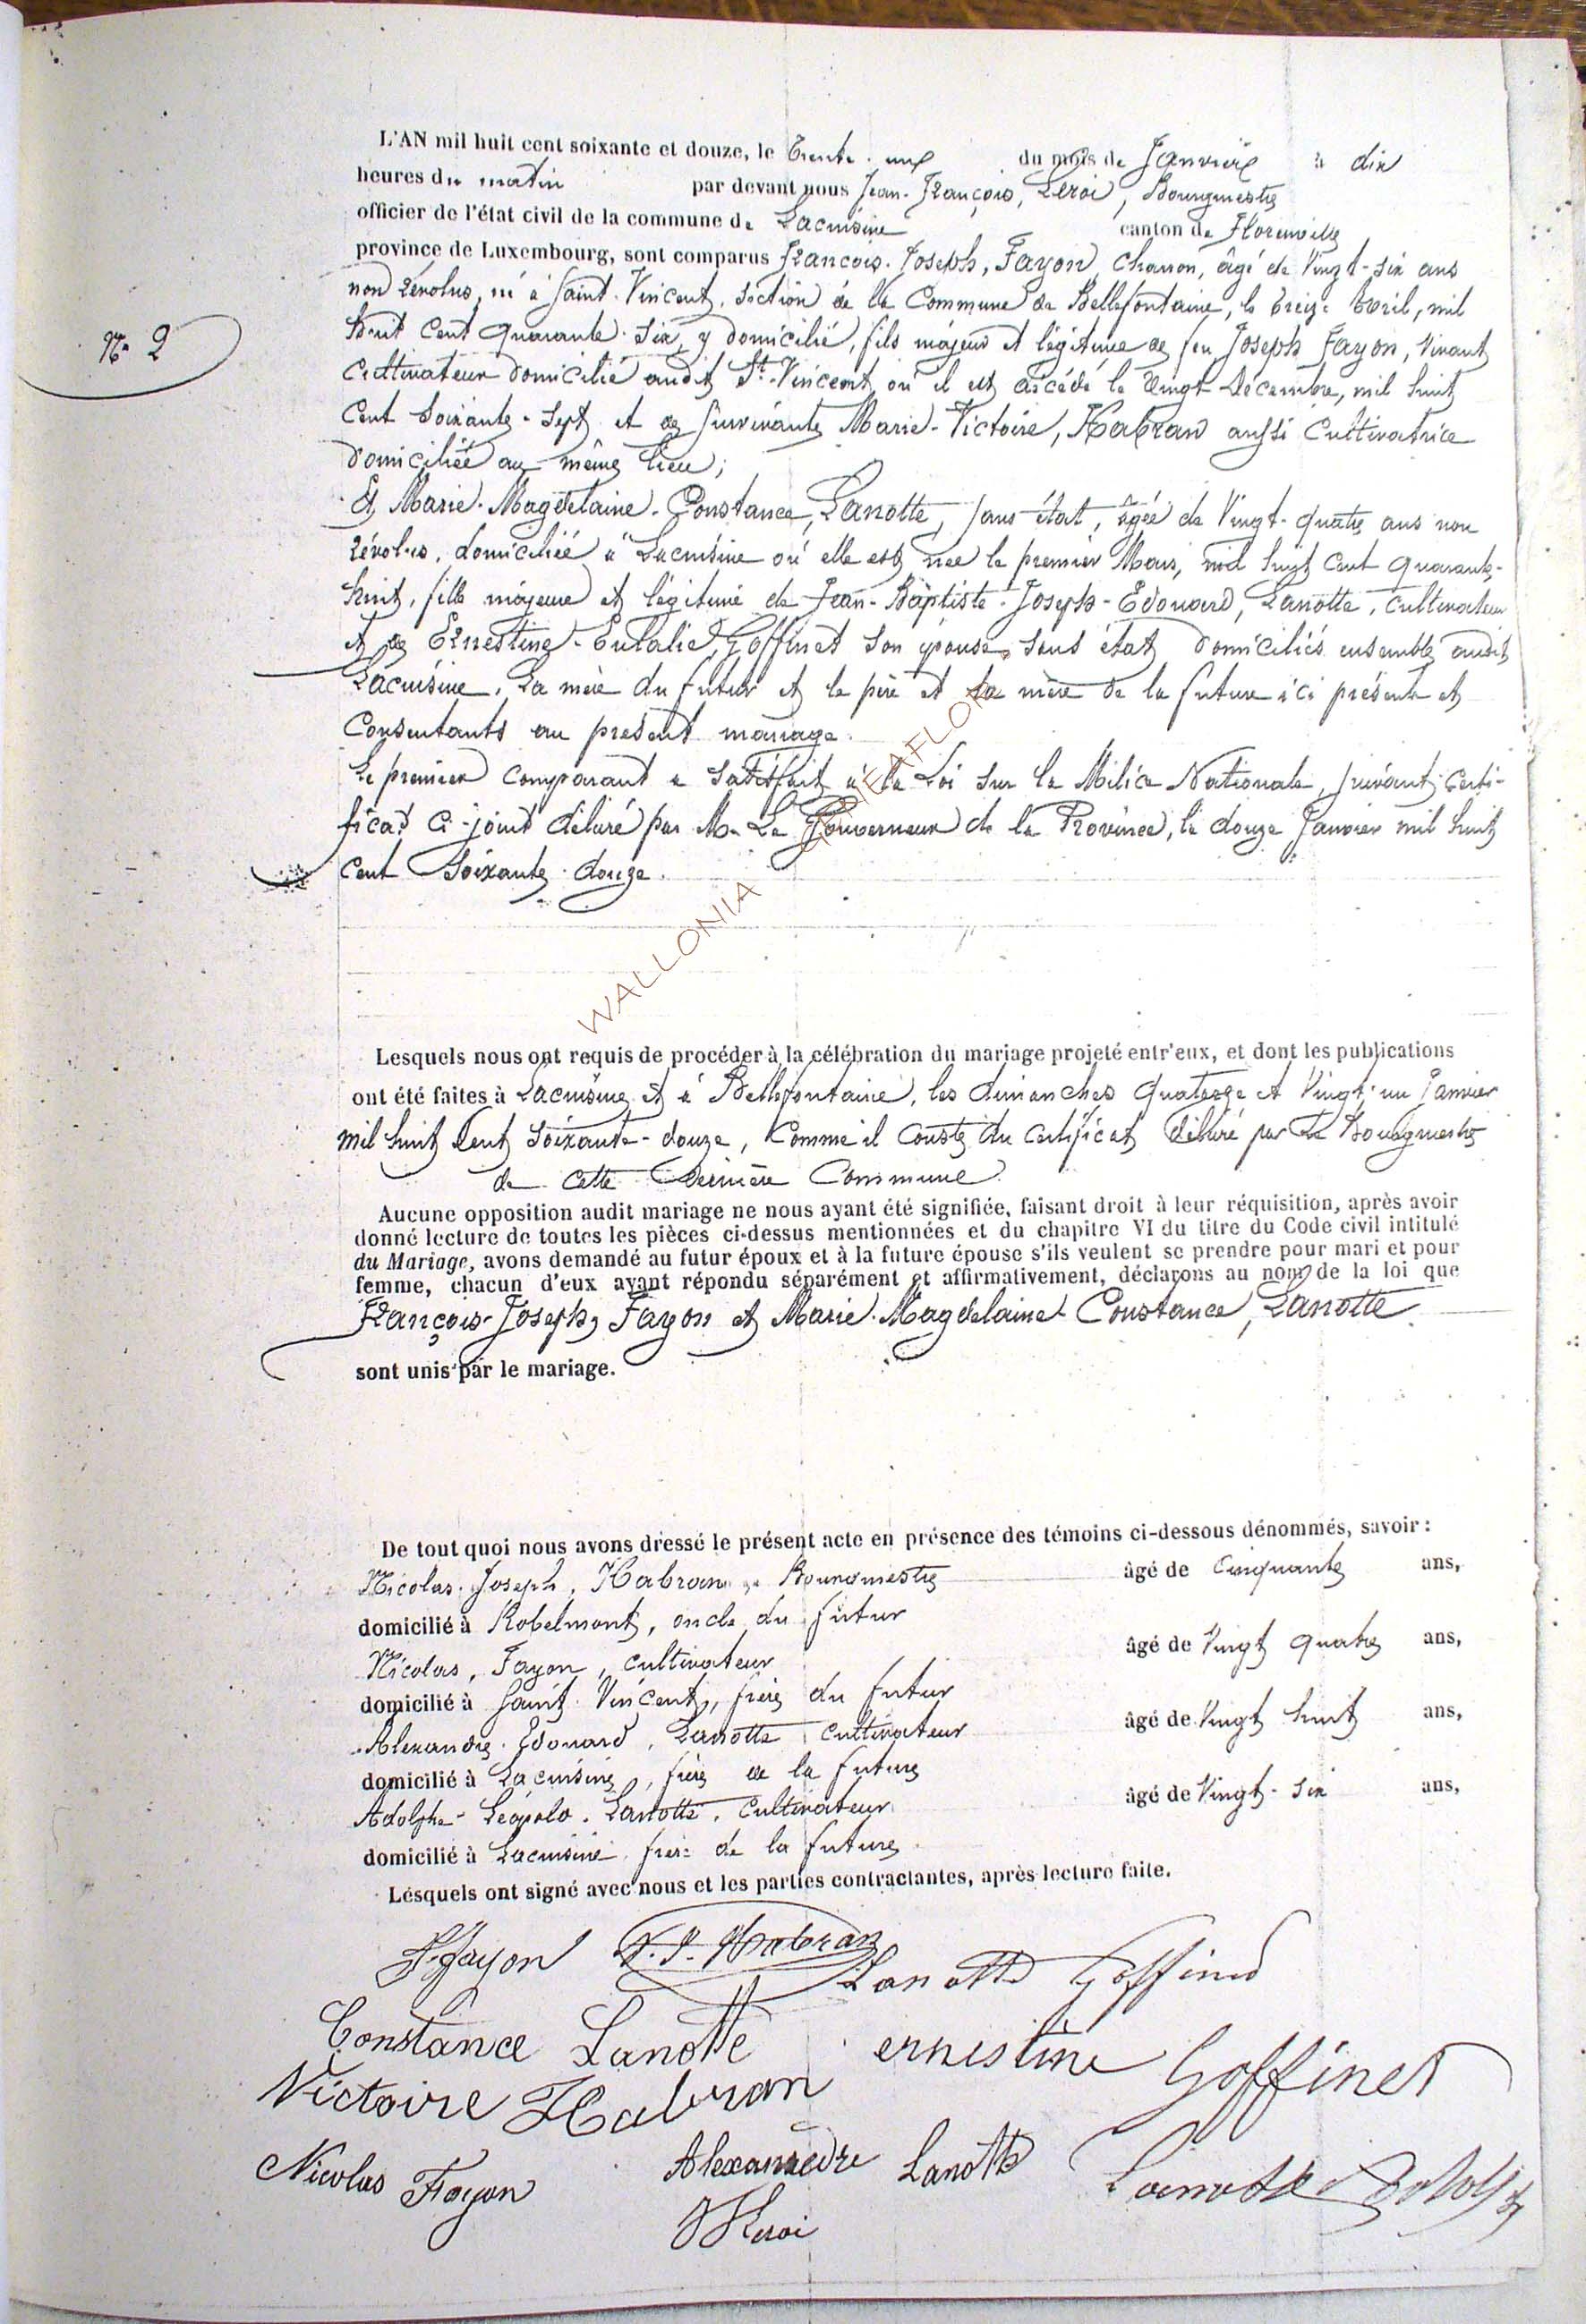 L'AN mil huit cent soixante et douze, le Trente-un du mois de Janvier à dix
heures du matin par devant nous Jean-François, Leroi, Bourgmestre
officier de l'état civil de la commune de Lacuisine canton de Florenville
province de Luxembourg, sont comparus François-Joseph, Fayon, Charron, âgé de Vingt-six ans
non révolus, né à Saint-Vincent, section de la Commune de Bellefontaine, le treize Avril, mil
huit Cent quarante-six, y domicilié, fils majeur et légitime de feu Joseph Fayon, vivant
Cultivateur domicilié audit St-Vincent où il est décédé le vingt Décembre, mil huit
Cent soixante-sept et de survivante Marie-Victoire, Habran aussi Cultivatrice
domiciliée au même lieu;
Et Marie-Magdelaine-Constance, Lanotte, sans état, âgée de Vingt-quatre ans non
révolus, domiciliée à Lacuisine où elle est née le premier Mars, mil huit Cent quarante-
huit, fille majeure et légitime de Jean-Baptiste-Joseph-Edouard, Lanotte, cultivateur
et de Ernestine-Eulalie, Goffinet son épouse, sans état, domiciliés ensemble audit
Lacuisine. La mère du futur et le père et la mère de la future ici présents et
Consentants au présent mariage.
Le premier comparant a satisfait à la Loi sur la Milice Nationale, suivant Certi-
ficat ci-joint délivré par Mr Le Gouverneur de la Province, le douze Janvier mil huit
Cent soixante-douze.
N° 2
WALLONIA
Lesquels nous ont requis de procéder à la célébration du mariage projeté entr'eux, et dont les publications
ont été faites à Lacuisine et à Bellefontaine, les dimanches quatorze et Vingt-un Janvier
mil huit Cent soixante-douze, Comme il conste du certificat délivré par le Bourgmestre
de cette dernière Commune.
Aucune opposition audit mariage ne nous ayant été signifiée, faisant droit à leur réquisition, après avoir
donné lecture de toutes les pièces ci-dessus mentionnées et du chapitre VI du titre du Code civil intitulé
du Mariage, avons demandé au futur époux et à la future épouse s'ils veulent se prendre pour mari et pour
femme, chacun d'eux ayant répondu séparément et affirmativement, déclarons au nom de la loi que
François-Joseph, Fayon et Marie-Magdelaine-Constance, Lanotte
sont unis par le mariage.
De tout quoi nous avons dressé le présent acte en présence des témoins ci-dessous dénommés, savoir :
Nicolas-Joseph, Habran, Bourgmestre âgé de Cinquante ans,
domicilié à Robelmont, oncle du futur
Nicolas, Fayon, cultivateur âgé de Vingt quatre ans,
domicilié à Saint-Vincent, frère du futur
Alexandre-Edouard, Lanotte, cultivateur âgé de Vingt huit ans,
domicilié à Lacuisine, frère de la future
Adolphe-Léopold, Lanotte, cultivateur âgé de Vingt-six ans,
domicilié à Lacuisine, frère de la future.
Lesquels ont signé avec nous et les parties contractantes, après lecture faite.
Fayon N. J. Habran Lanotte Goffinet
Constance Lanotte ernestine Goffinet
Victoire Habran
Nicolas Fayon Alexandre Lanotte Lanotte Adolphe
Leroi